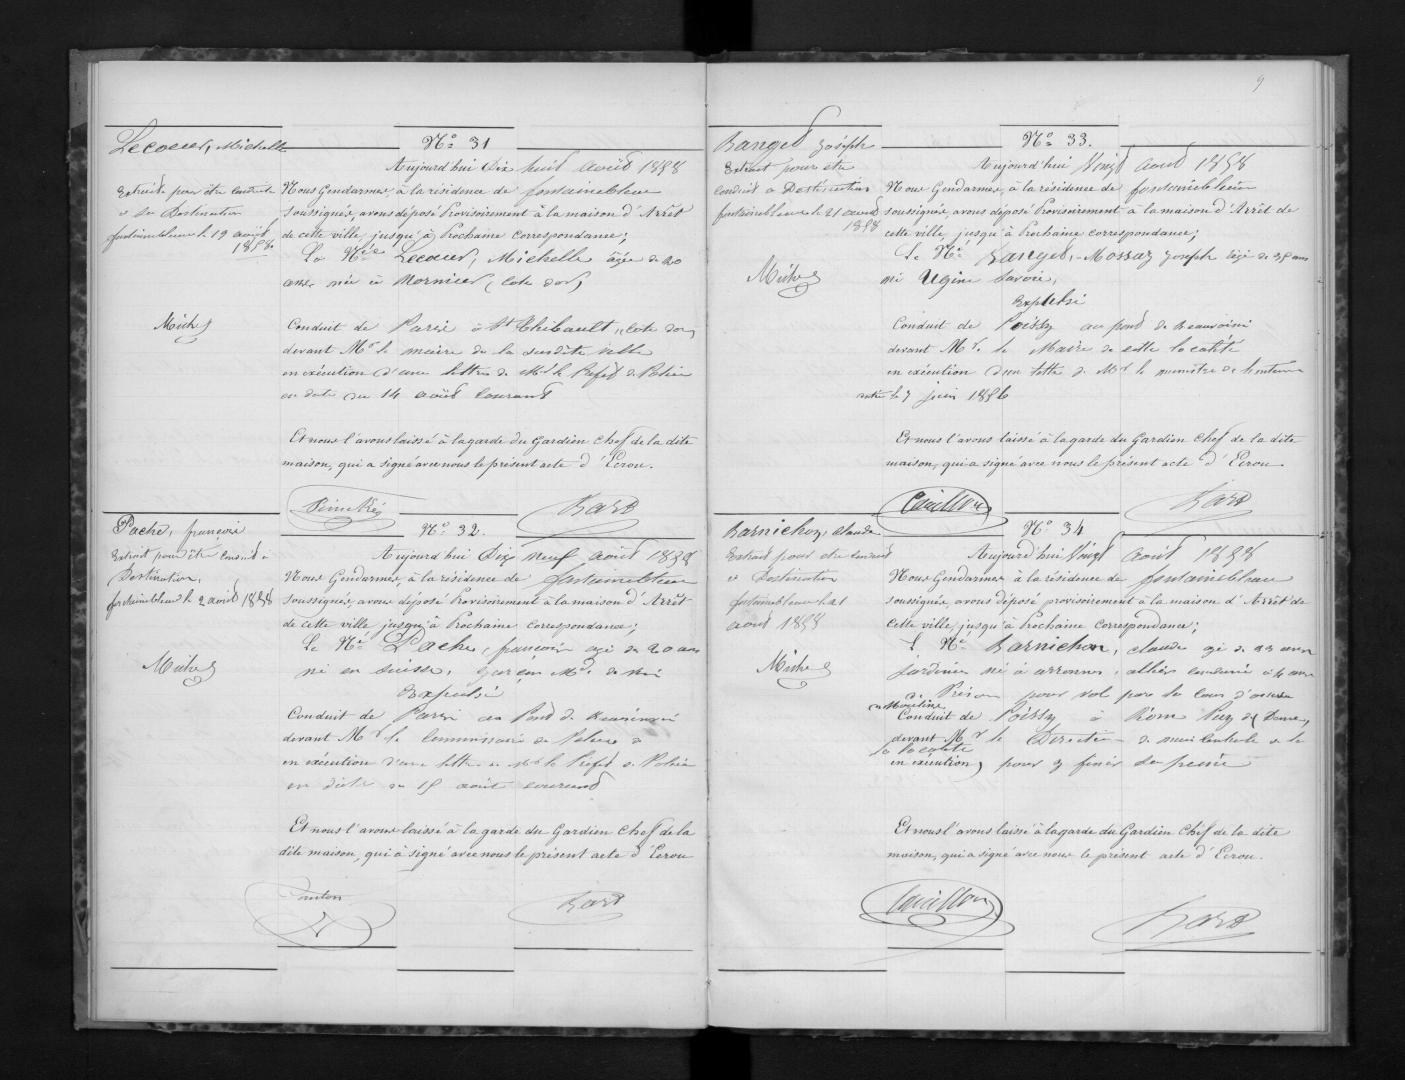 Lecoeur, Michelle
Extraite pour être conduite
à Sa Destination
fontainebleau le 19 août
1858
Michel
N° 31
Aujourd'hui Dix huit août 1858
Nous Gendarmes, à la résidence de fontainebleau
soussignés, avons déposé Provisoirement à la maison d'Arrêt
de cette ville, jusqu'à Prochaine correspondance;
La Née Lecoeur, Michelle âgée de 20
ans née à Mornier, Cote d'or,
Conduit de Paris à St Thibault, Cote d'or,
devant Mr le maire de la susdite ville
en exécution d'une lettre de Mr le Préfet de Police
en date du 14 août courant
Et nous l'avons laissé à la garde du Gardien Chef de la dite
maison, qui a signé avec nous le présent acte d'Ecrou.
Bard
Pache, françois
Extrait pour être conduit à
Destination,
fontainebleau le 2 août 1858
Michel
N° 32.
Aujourd'hui Dix neuf août 1858
Nous Gendarmes, à la résidence de fontainebleau
soussignés, avons déposé Provisoirement à la maison d'Arrêt
de cette ville, jusqu'à Prochaine correspondance;
Le Né Pache, françois agé de 20 ans
né en suisse, garçon Md de
Expulsé
Conduit de Paris au Pond de Beauvoisi
devant Mr le Commissaire de Police
en exécution d'une lettre de Mr le Préfet de Police
en date du 15 août courant
Et nous l'avons laissé à la garde du Gardien Chef de la
dite maison, qui à signé avec nous le présent acte d'Ecrou
Bard
9
Ranged Joseph
Extrait pour etre
conduit a Destination
fontainebleau le 21 août
1858
Michel
N° 33.
Aujourd'hui Vingt août 1858
Nous Gendarmes, à la résidence de fontainebleau
soussignés, avons déposé Provisoirement à la maison d'Arrêt de
cette ville, jusqu'à Prochaine correspondance;
Le Né Ranged, Joseph âgé de ans
né Ugine Savoie,
Expulsé
Conduit de Poissy au pond de Beauvoisi
devant Mr le Maire de cette localité
en exécution d'un lettre de Mr le ministre de l'interieur
le 7 juin 1856
Et nous l'avons laissé à la garde du Gardien Chef de la dite
maison, qui a signé avec nous le présent acte d'Ecrou
Cavillon
Bard
Barnichon, claude
Extrait pour etre conduit
a Destination
fontainebleau le 21
août 1858
Michel
N° 34
Aujourd'hui Vingt août 1858
Nous Gendarmes à la résidence de fontainebleau
soussignés, avons déposé provisoirement à la maison d'Arrêt de
cette ville, jusqu'à Prochaine correspondance;
Le Né Barnichon, claude agé de ans
jardinier né à arronnes, allier condamné à 4 ans
de Prison pour vol par la cour d'assise
Moulins
Conduit de Poissy à Riom Puy de Dome,
devant Mr le Directeur de maison Centrale de la
la localité
en exécution, pour y finir sa peine
Et nous l'avons laissé à la garde du Gardien Chef de la dite
maison, qui a signé avec nous le présent acte d'Ecrou.
Cavillon
Bard